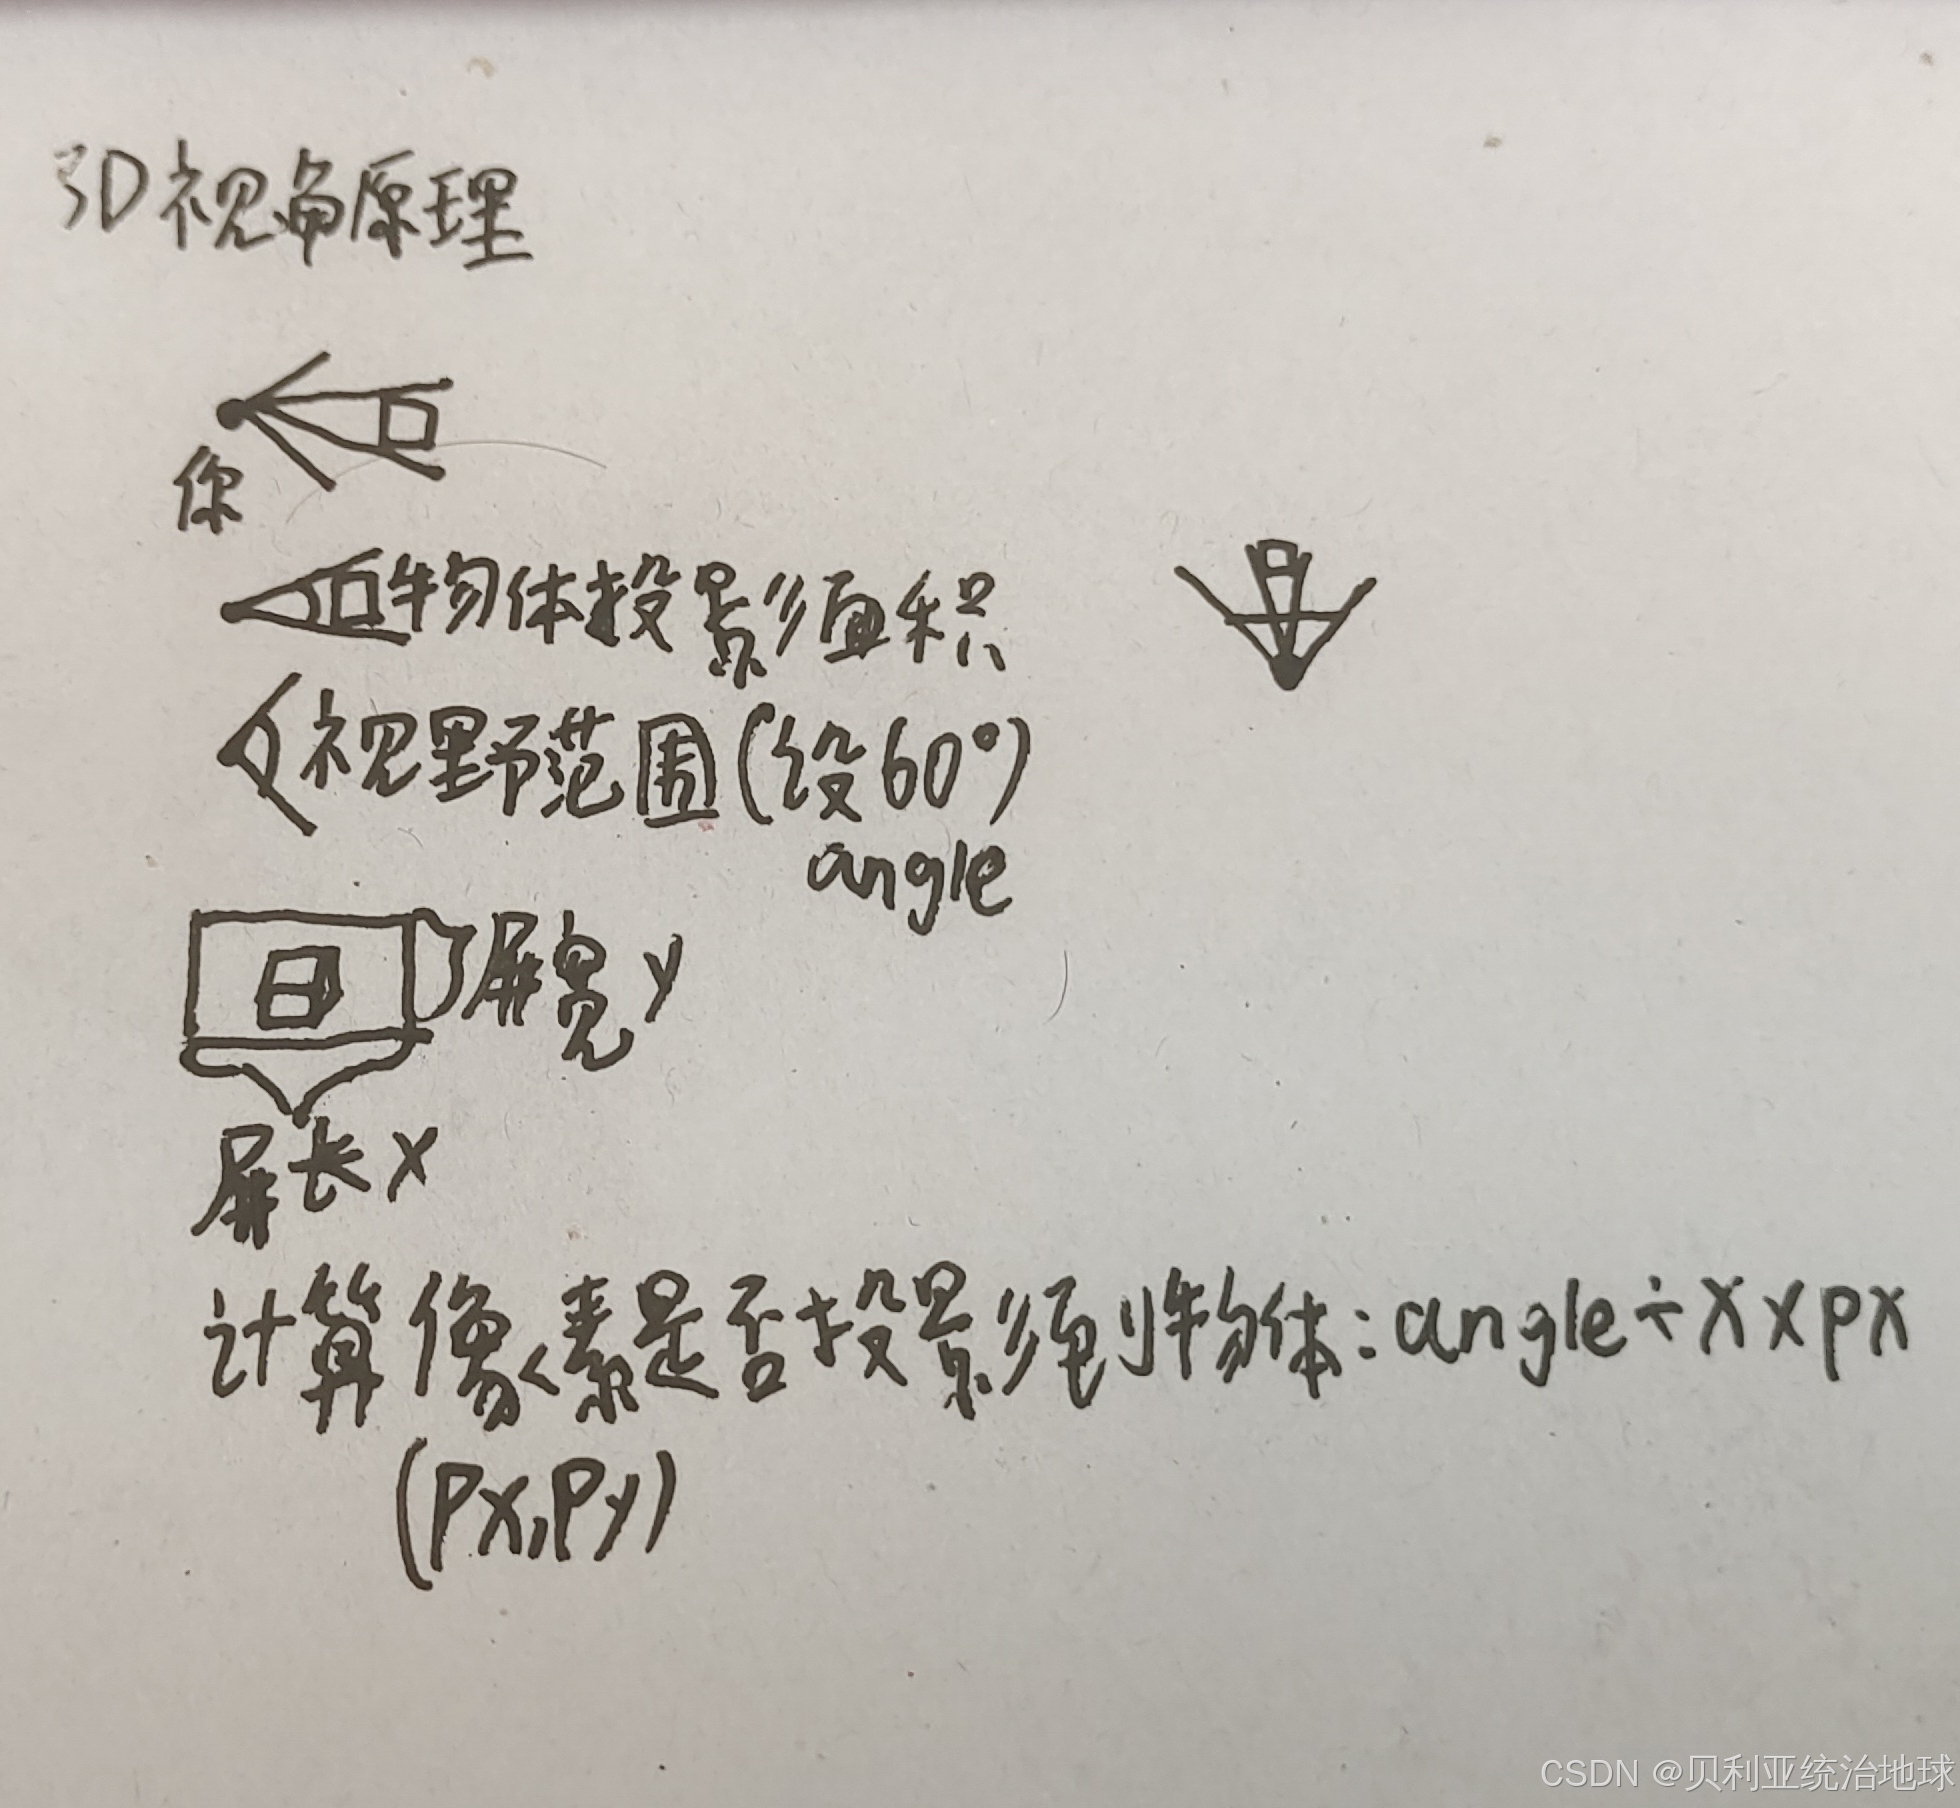 3D视角原理
你
物体投影面积
视野范围(设60°)
angle
屏宽y
屏长x
计算像素是否投影到物体:angle÷x×px
(px,py)
CSDN @贝利亚统治地球